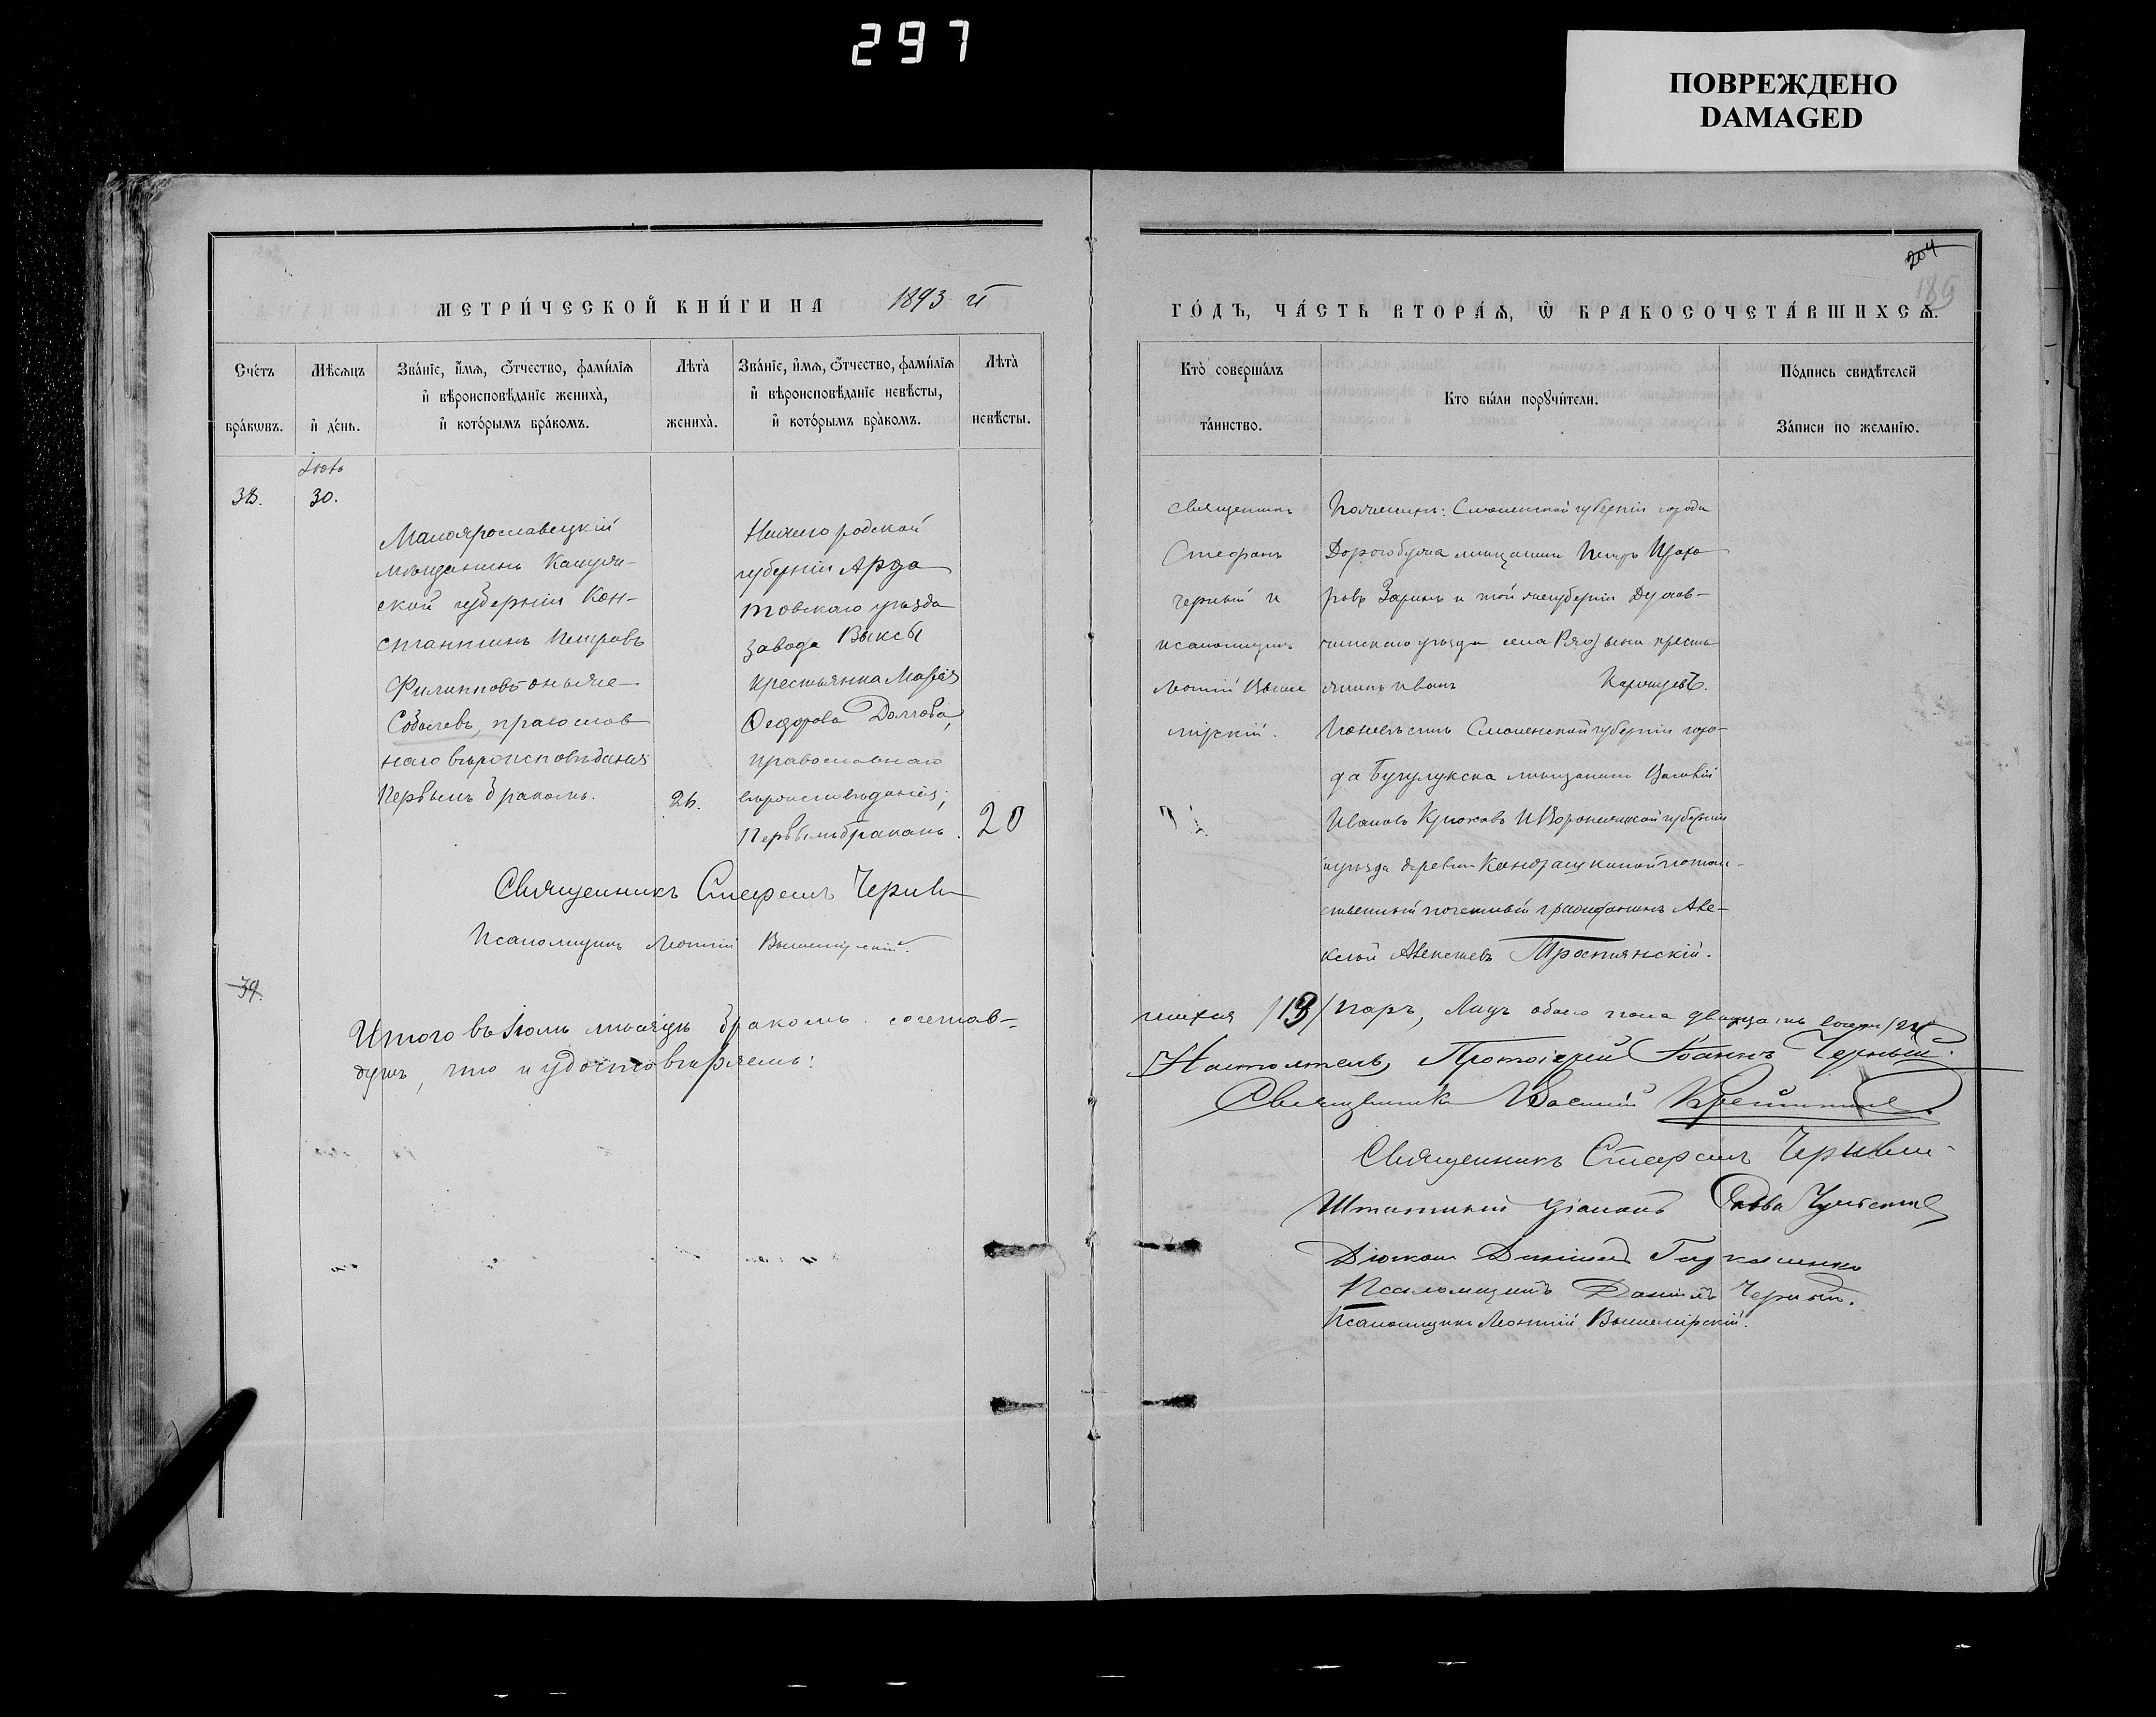 297
ПОВРЕЖДЕНО
DAMAGED
204
189
МЕТРИ́ЧЕСКОЙ КНИ́ГИ НА 1893 й
ГО́ДЪ, ЧА́СТЬ ВТОРА́Ѧ, Ѡ БРАКОСОЧЕТА́ВШИХСѦ.
Сче́тъ бра́кѡвъ.
Мѣ́сѧцъ и҆ де́нь.
Зва́нїе, и҆́мѧ, ѻ҆́тчество, фами́лїѧ
и҆ вѣроисповѣ́данїе жениха̀,
и҆ кото́рымъ бра́комъ.
Лѣ́та̀ жениха̀.
Зва́нїе, и҆́мѧ, ѻ҆́тчество, фами́лїѧ
и҆ вѣроисповѣ́данїе невѣ́сты,
и҆ кото́рымъ бра́комъ.
Лѣ́та̀ невѣ́сты.
Кто̀ соверша́лъ
та́инство.
Кто бы́ли порꙋчи́тели.
По́дпись свидѣ́телей
За́писи по жела́нїю.
38.
30.
Малоярославецкій
мѣщанинъ Калуж-
ской губерніи Кон-
стантинъ Петровъ
Филипповъ онъ же
Соболевъ, православ
наго вѣроисповѣданія
Первымъ бракомъ.
26.
Нижегородской
губерніи Арда
товскаго уѣзда
завода Выксы
крестьянка Марія
Ѳедорова Долгова,
православнаго
вѣроисповѣданія;
Первымъ бракомъ.
20
Священникъ
Стефанъ
Черный и
псаломщикъ
Леонтій Выше
мірскій.
По женихѣ: Смоленской губерніи города
Дорогобужа мѣщанинъ Петръ Прохо
ровъ Заринъ и той же губерніи Духов-
щинскаго уѣзда села
янинъ Иванъ
По невѣстѣ: губерніи горо-
да Бугулукска мѣщанинъ
Ивановъ Крюковъ и Воронежской губерніи
уѣзда деревни потом-
ственный почетный гражданинъ Але-
ксѣй Алексѣевъ Тростянскій.
Священникъ Стефанъ Черный
Псаломщикъ Леонтій Вышемірскій.
39.
Итого въ Іюлѣ мѣсяцѣ бракомъ сочетав-
шихся /13/ паръ, Лицъ обоего пола двадцать
душъ, что и удостовѣряемъ:
Настоятель, Протоіерей Іоаннъ Черный.
Священникъ Василій
Священникъ Стефанъ Черный
Штатный діаконъ Савва
Діаконъ
Псаломщикъ Даніилъ Черный.
Псаломщикъ Леонтій Вышемірскій.